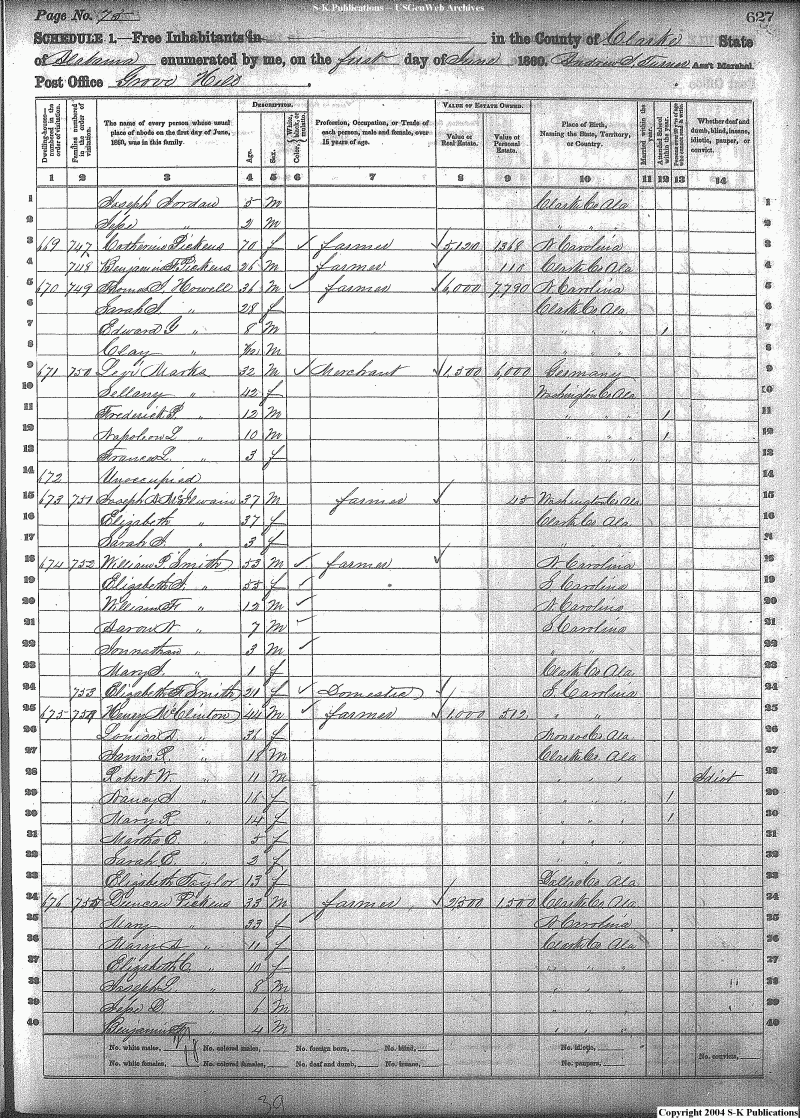 S-K Publications -- USGenWeb Archives
Page No. 75 627
SCHEDULE 1.—Free Inhabitants in in the County of Clarke State
of Alabama enumerated by me, on the first day of June 1860. Andrew S. Turner Ass't Marshal.
Post Office Grove Hill.
Dwelling-houses— numbered in the order of visitation.
Families numbered in the order of visitation.
The name of every person whose usual place of abode on the first day of June, 1860, was in this family.
DESCRIPTION.
Age. Sex. Color, White, black, or mulatto.
Profession, Occupation, or Trade of each person, male and female, over 15 years of age.
VALUE OF ESTATE OWNED.
Value of Real Estate. Value of Personal Estate.
Place of Birth, Naming the State, Territory, or Country.
Married within the year. Attended School within the year.
Whether deaf and dumb, blind, insane, idiotic, pauper, or convict.
1 2 3 4 5 6 7 8 9 10 11 12 13 14
1 Joseph Jordan 5 M Clark Co Ala 1
2 " 2 M " " " 2
3 669 747 Catherine Pickens 70 f ✓ farmer ✓ 5,120 1368 N Carolina 3
4 748 Benjamin F. Pickens 26 M farmer ✓ 110 Clark Co Ala 4
5 670 749 Thomas S. Howell 36 M ✓ farmer ✓ 6,000 7,790 N Carolina 5
6 Sarah S. " 28 f Clark Co Ala 6
7 Edward G " 8 M " " " 1 7
8 Clay " M " " " 8
9 671 750 Levi Marks 32 M ✓ Merchant ✓ 1,500 6,000 Germany 9
10 Sellany " 42 f Washington Co Ala 10
11 Frederick P. " 12 M " " " 1 11
12 Napoleon L " 10 M " " " 1 12
13 Frances L. " 3 f " " " 13
14 672 Unoccupied 14
15 673 751 Joseph McIlwain 37 M farmer ✓ 45 Washington Co Ala 15
16 Elizabeth " 37 f Clark Co Ala 16
17 Sarah S. " 3 f " " " 17
18 674 752 William P. Smith 53 M ✓ farmer ✓ N Carolina 18
19 Elizabeth S. " 55 f ✓ S. Carolina 19
20 William H " 12 M ✓ N Carolina 20
21 Aaron N " 7 M ✓ S Carolina 21
22 Jonnathan " 3 M ✓ " " 22
23 Mary S. " 1 f Clark Co Ala 23
24 753 Elizabeth F. Smith 21 f ✓ Domestic ✓ S. Carolina 24
25 675 754 Henry McClinton 44 M ✓ farmer ✓ 1,000 512 " " 25
26 " 36 f Monroe Co Ala 26
27 James R. " 18 M Clark Co Ala 27
28 Robert W. " 11 M " " " Idiot 28
29 Nancy S " 16 f " " " 1 29
30 Mary R " 14 f " " " 1 30
31 Martha E. " 5 f " " " 31
32 Sarah E. " 2 f " " " 32
33 Elizabeth Taylor 13 f Dallas Co Ala 33
34 676 755 Duncan Pickens 33 M farmer ✓ 2,500 1,500 Clark Co Ala 34
35 Mary " 33 f ✓ N Carolina 35
36 " 11 f Clark Co Ala 36
37 Elizabeth C. " 10 f " " " 37
38 Joseph " 8 M " " " 38
39 D " 6 M " " " 39
40 Benjamin " 4 M " " " 40
No. white males, No. colored males, No. foreign born, No. blind, No. idiotic,
No. white females, No. colored females, No. deaf and dumb, No. insane, No. paupers, No. convicts,
39
Copyright 2004 S-K Publications